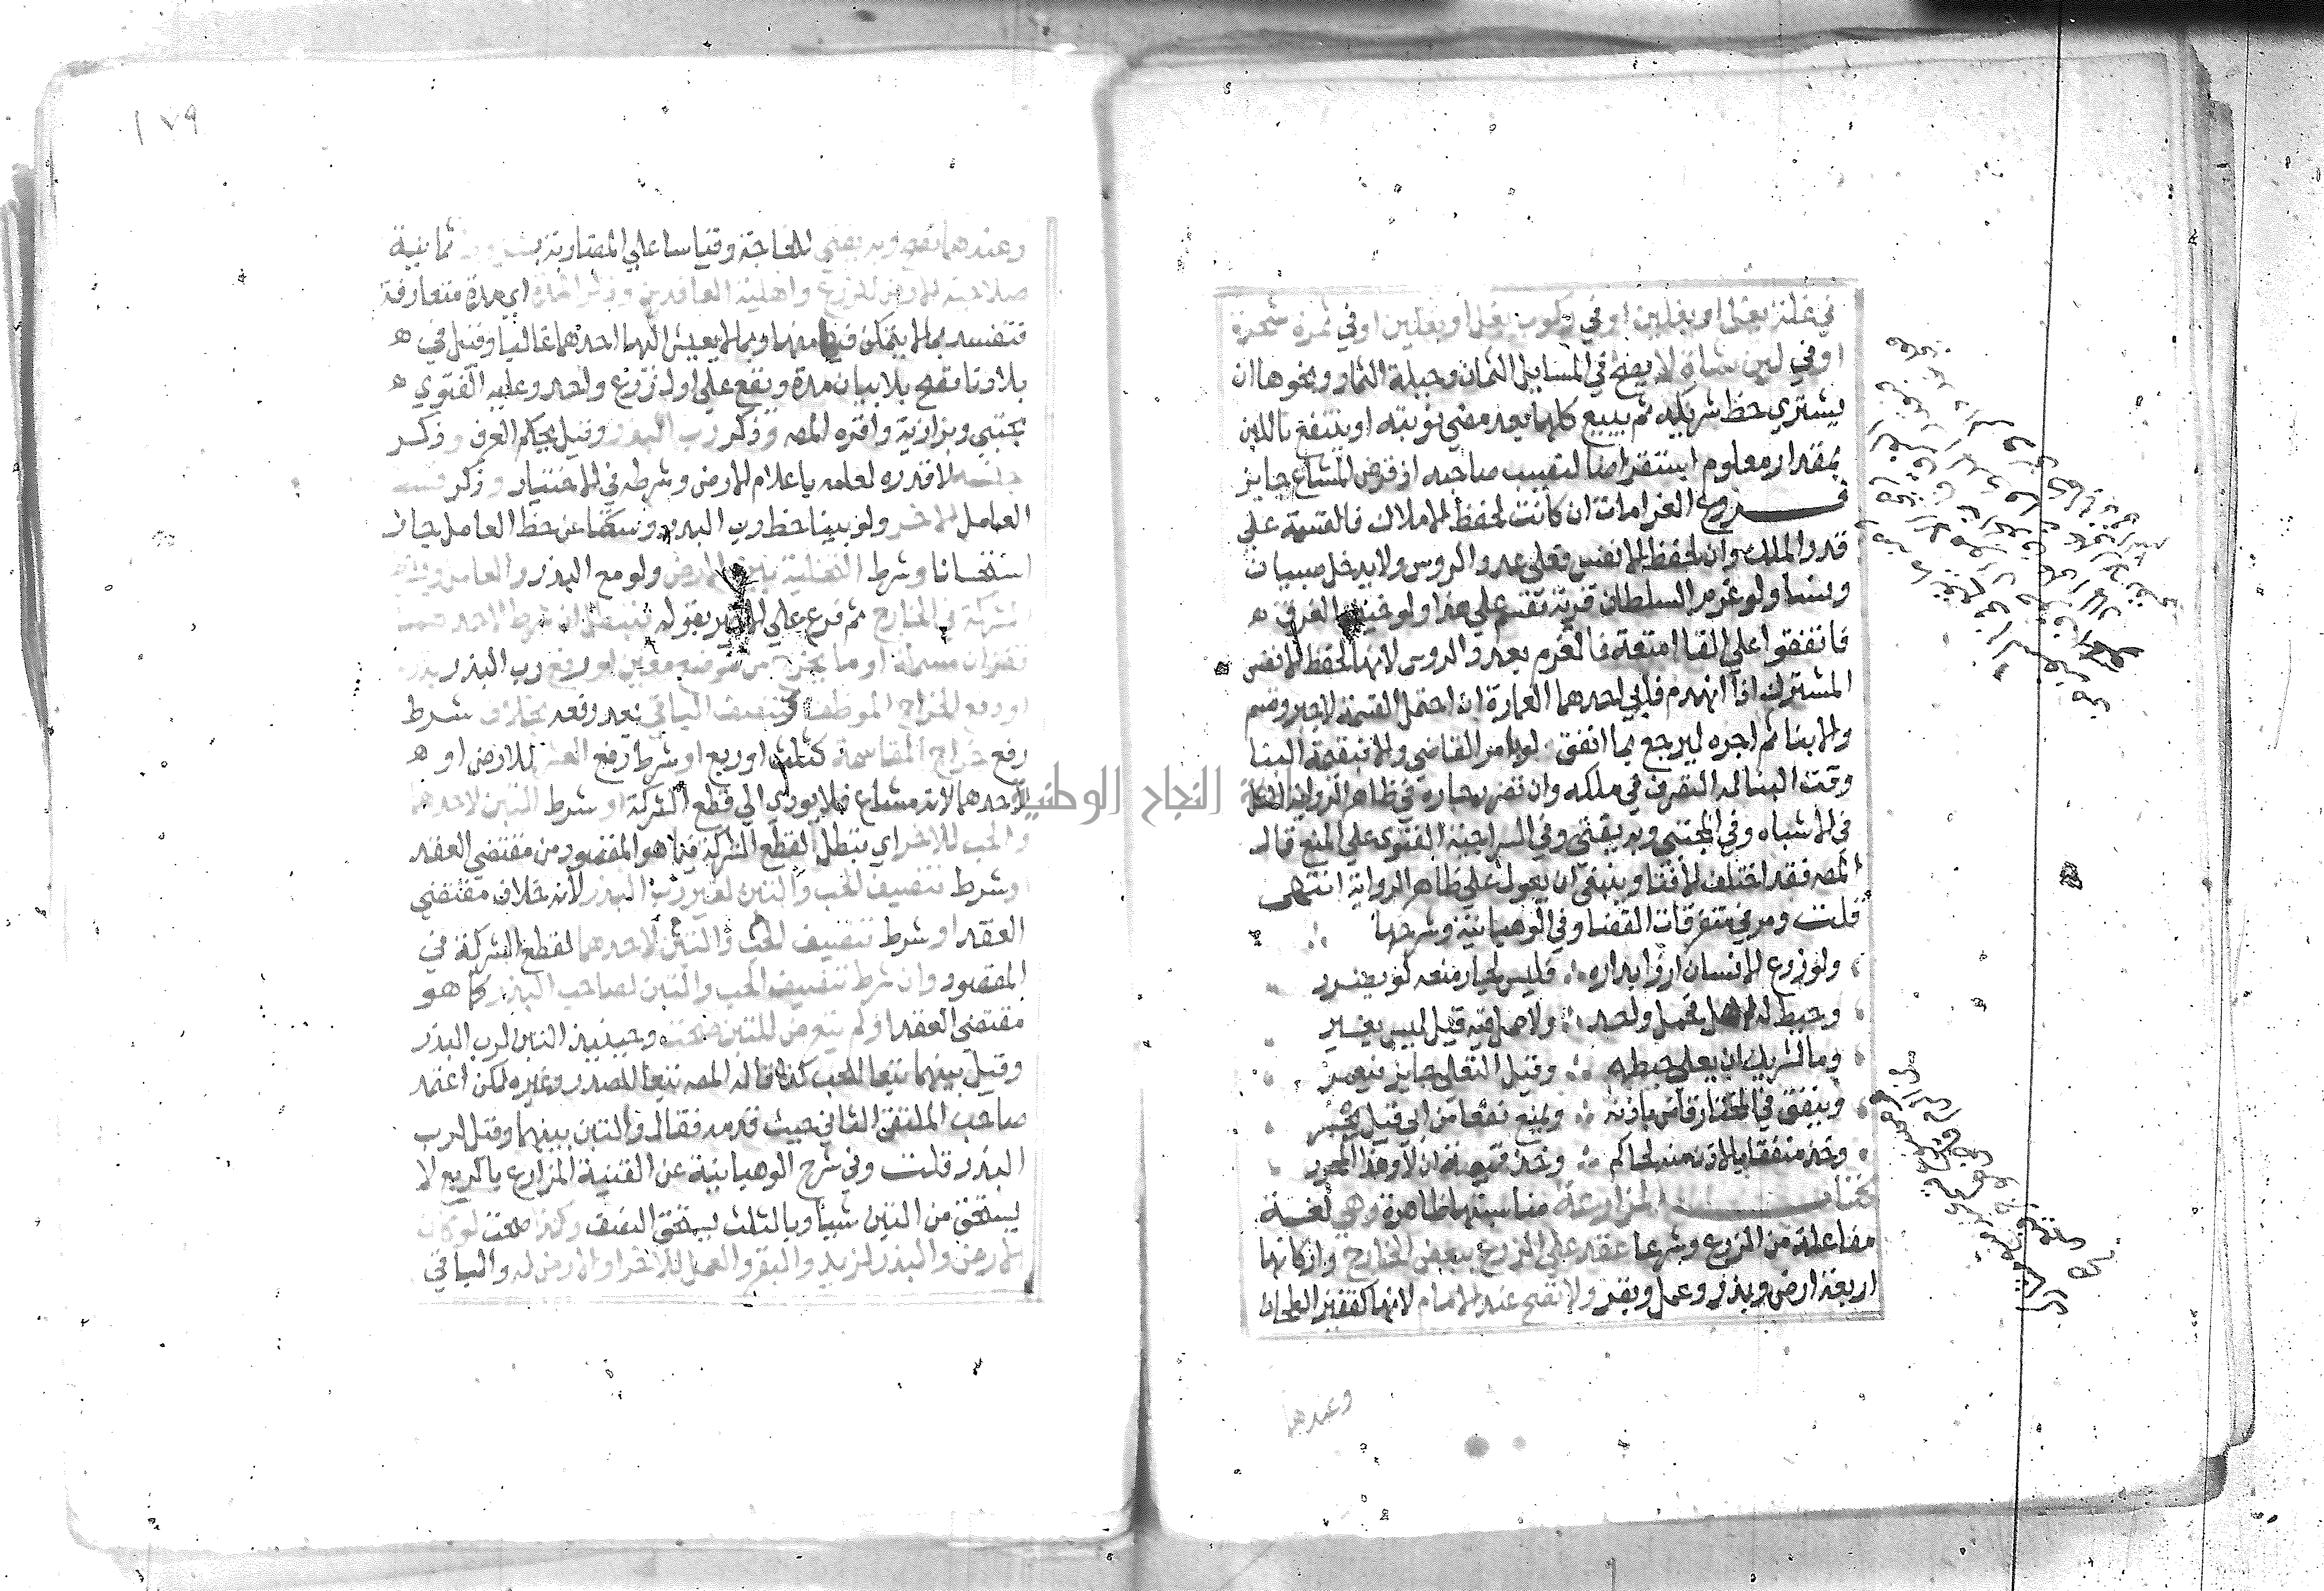 في غلة بغل او بغلين او في ركوب بغل او بغلين او في ثمرة شجرة
او في لبن شاة لا يصح في المسايل الثمان وحيلة الثمار ونحوها ان
يشتري حظ شريكه ثم يبيع كلها بعد مضي نوبته او ينتفع باللبن
بمقدار معلوم استقراضا لنصيب صاحبه اذ قرض المشاع جايز
فروع الغرامات ان كانت لحفظ الاملاك فالقسمة على
قدر الملك وان لحفظ الانفس فعلى عدد الروس ولا يدخل صبيان
ونسا ولو غرم السلطان قرية تقسم على هذا ولو خيف الغرق
فاتفقوا على القا امتعة فالغرم بعدد الروس لانها لحفظ الانفس
المشترك اذا انهدم فابى احدهما العمارة ان احتمل القسمة لا جبر وقسم
والا بنا ثم اجره ليرجع بما انفق لو بامر القاضي والا فبقيمة البنا
وقت البنا له التصرف في ملكه وان تضرر جاره في ظاهر الرواية الكل
في الاشباه وفي المجتبى وبه يفتى وفي السراجية الفتوى على المنع قال
المص فقد اختلف الافتا وينبغي ان يعول على ظاهر الرواية انتهى
قلت ومر في متفرقات القضا وفي الوهبانية وشرحها
ولو زرع الانسان ارزا بداره فليس لجار منعه لو يضرر
وحيط له اهل فحمل واحد ولا حمل فيه قيل ليس يغير
وما لشريك ان يعلي حيطه وقيل التعلي جايز فيعمر
وينفق في المختار قاض باذنه ويمنع نفعا من ابى قبل يجبر
وخذ منفقا بالاذن منه لحاكم وخذ قيمة ان لا وهذا المحرر
كتاب المزارعة مناسبتها ظاهرة وهي لغة
مفاعلة من الزرع وشرعا عقد على الزرع ببعض الخارج واركانها
اربعة ارض وبذر وعمل وبقر ولا تصح عند الامام لانها كقفيز الطحان
وعندهما
١٧٩
وعندهما تصح وبه يفتى للحاجة وقياسا على المضاربة بشروط ثمانية
صلاحية الارض للزرع واهلية العاقدين وذكر المدة اي مدة متعارفة
فتفسد بما لا يتمكن فيها منها وبما لا يعيش اليها احدهما غالبا وقيل في
بلادنا تصح بلا بيان مدة وتقع على اول زرع واحد وعليه الفتوى
مجتبى وبزازية واقره المص وذكر رب البذر وقيل يحكم العرف وذكر
جنسه لا قدره لعلمه باعلام الارض وشرطه في الاختيار وذكر قسط
العامل الاخر ولو بينا حظ رب البذر وسكتا عن حظ العامل جاز
استحسانا وشرط التخلية بين الارض ولو مع البذر والعامل وشرط
الشركة في الخارج ثم فرع على الاخير بقوله فتبطل ان شرط لاحدهما
قفزان مسماة او ما يخرج من موضع معين او رفع رب البذر بذره
او رفع الخراج الموظف وتنصيف الباقي بعد رفعه بخلاف شرط
رفع خراج المقاسمة كثلث او ربع او شرط رفع العشر للارض او
لاحدهما لانه مشاع فلا يودي الى قطع الشركة او شرط التبن لاحدهما
والحب للاخر اي تبطل لقطع الشركة فيما هو المقصود من مقتضى العقد
او شرط تنصيف الحب والتبن لغير رب البذر لانه خلاف مقتضى
العقد او شرط تنصيف الحب والتبن لاحدهما لقطع الشركة في
المقصود وان شرط تنصيف الحب والتبن لصاحب البذر كما هو
مقتضى العقد او لم يتعرض للتبن صحت وحينيذ التبن لرب البذر
وقيل بينهما تبعا للحب كذا قاله المص تبعا للصدر وغيره لكن اعتمد
صاحب الملتقى الثاني حيث قدمه فقال والتبن بينهما وقيل لرب
البذر قلت وفي شرح الوهبانية عن القنية المزارع بالربع لا
يستحق من التبن شيا وبالثلث يستحق النصف وكذا صحت لو كان
الارض والبذر لزيد والبقر والعمل للاخر او الارض له والباقي
النجاح الوطنية